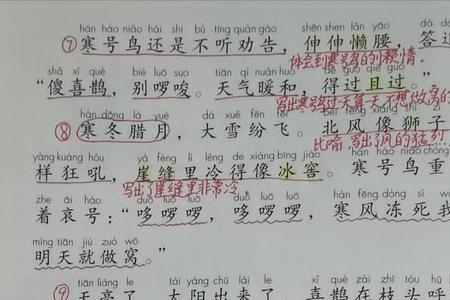 hán háo niǎo hái shì bù tīng quàn gào shēn shen lǎn yāo dá
⑦寒号鸟还是不听劝告，伸伸懒腰，答
体会到寒号鸟的懒惰。
shǎ xǐ què bié luō suo tiān qì nuǎn
“傻喜鹊，别啰唆。天气暖和，得过且过。
写出寒号鸟过一天算一天不想做窝的
hán dōng là yuè dà xuě fēn fēi běi fēng xiàng shī
⑧寒冬腊月，大雪纷飞。北风像狮子
比喻 写出了风的猛烈
yàng kuáng hǒu yá fèng lǐ lěng de xiàng bīng jiào hán háo niǎo
样狂吼，崖缝里冷得像冰窖。寒号鸟重
写出了崖缝里非常冷
着哀号：“哆啰啰，哆啰啰，寒风冻死我
míng tiān jiù zuò wō
明天就做窝。”
tiān liàng le tài yáng chū lái le xǐ què zài zhī tóu hū
⑨天亮了，太阳出来了，喜鹊在枝头呼